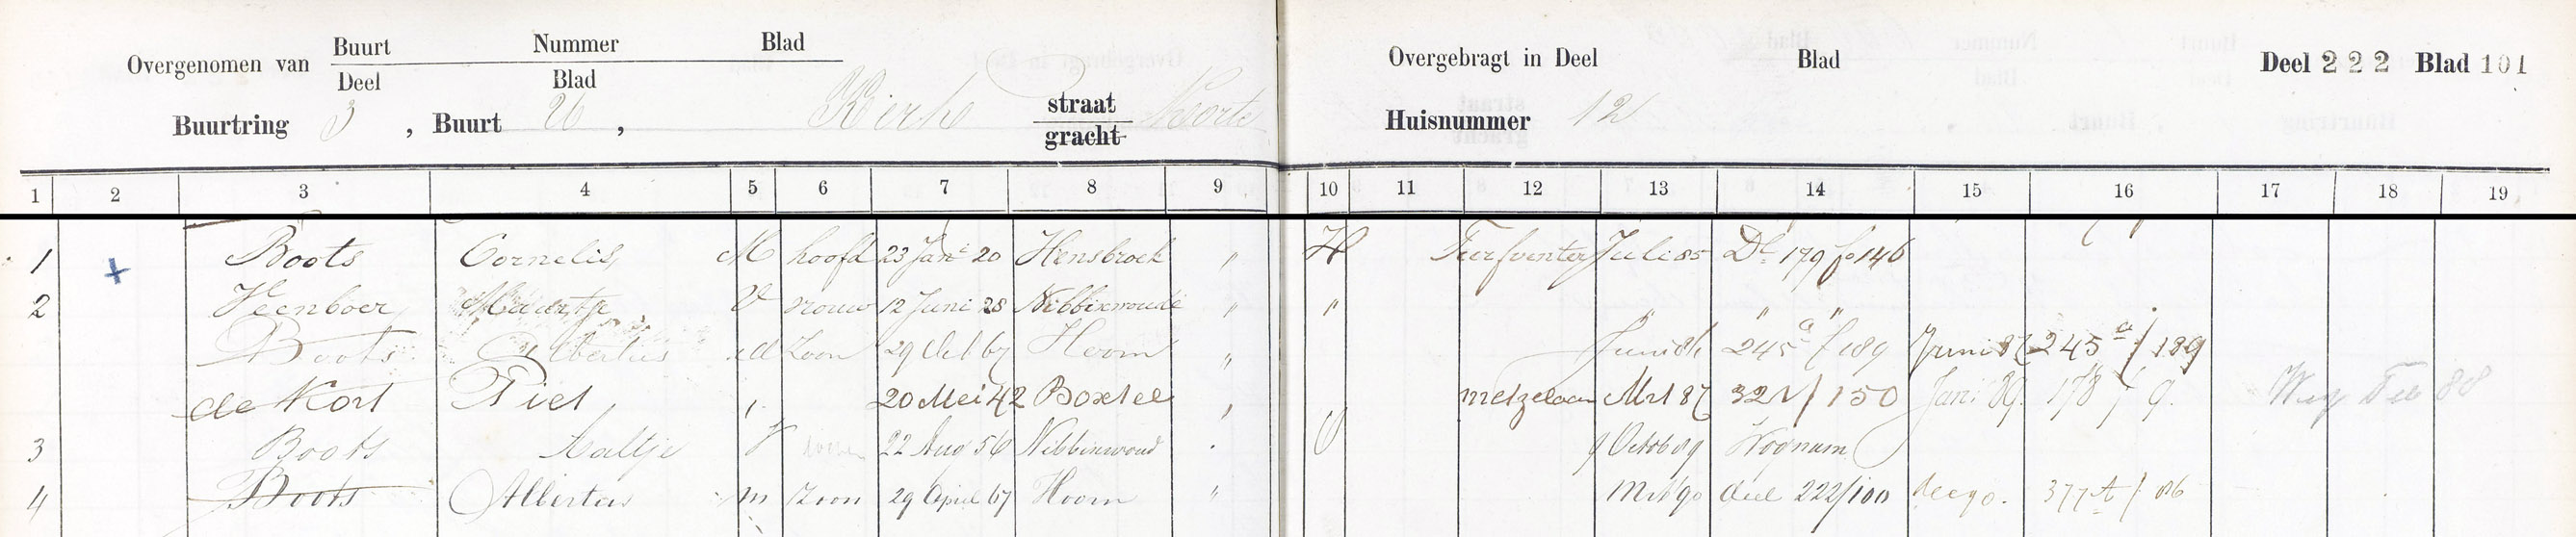 Overgenomen van Buurt Nummer Blad
Deel Blad
Buurtring 3, Buurt 26, Kerk straat Korte
gracht
Overgebragt in Deel Blad Deel 222 Blad 101
Huisnummer 12
1 2 3 4 5 6 7 8 9 10 11 12 13 14 15 16 17 18 19
1 + Boots Cornelis M hoofd 23 Jan 20 Hensbroek " H Turfventer Juli 85 Dl 179 fo 146
2 Veenboer Maartje V vrouw 12 Juni 28 Nibbixwoude " " " " "
Boots Albertus M Zoon 29 67 Hoorn " Juni 86 245 a f 189 Juni 87 245 a / 189
de Kort Piet " 20 Mei 42 Boxtel " metzelaar Mrt 87 321 / 150 Jan: 89. 178 f 9. Weg 88
3 Boots Aaltje V 22 Aug 56 Nibbixwoud . 9 Octob 89 Wognum
4 Boots Albertus m Zoon 29 April 67 Hoorn " Mrt 90 deel 222/100 dec 90. 377 A / 86